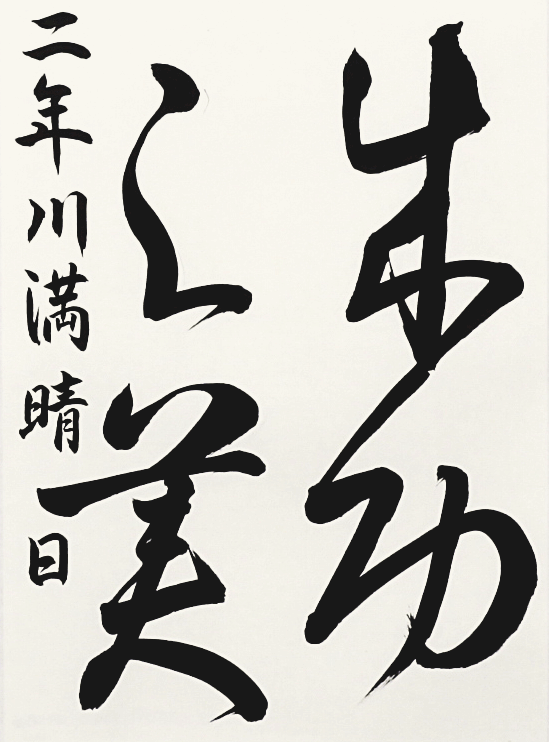 功
之美
二年川満晴日